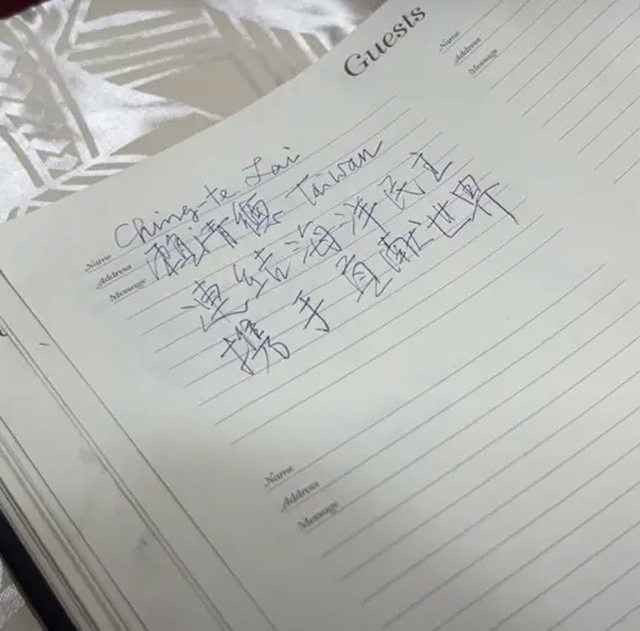 Guests
Name Ching-te Lai
Address 賴清德 Taiwan
Message 連結海洋民主
携手貢献世界
Name
Address
Message
Name
Address
Message